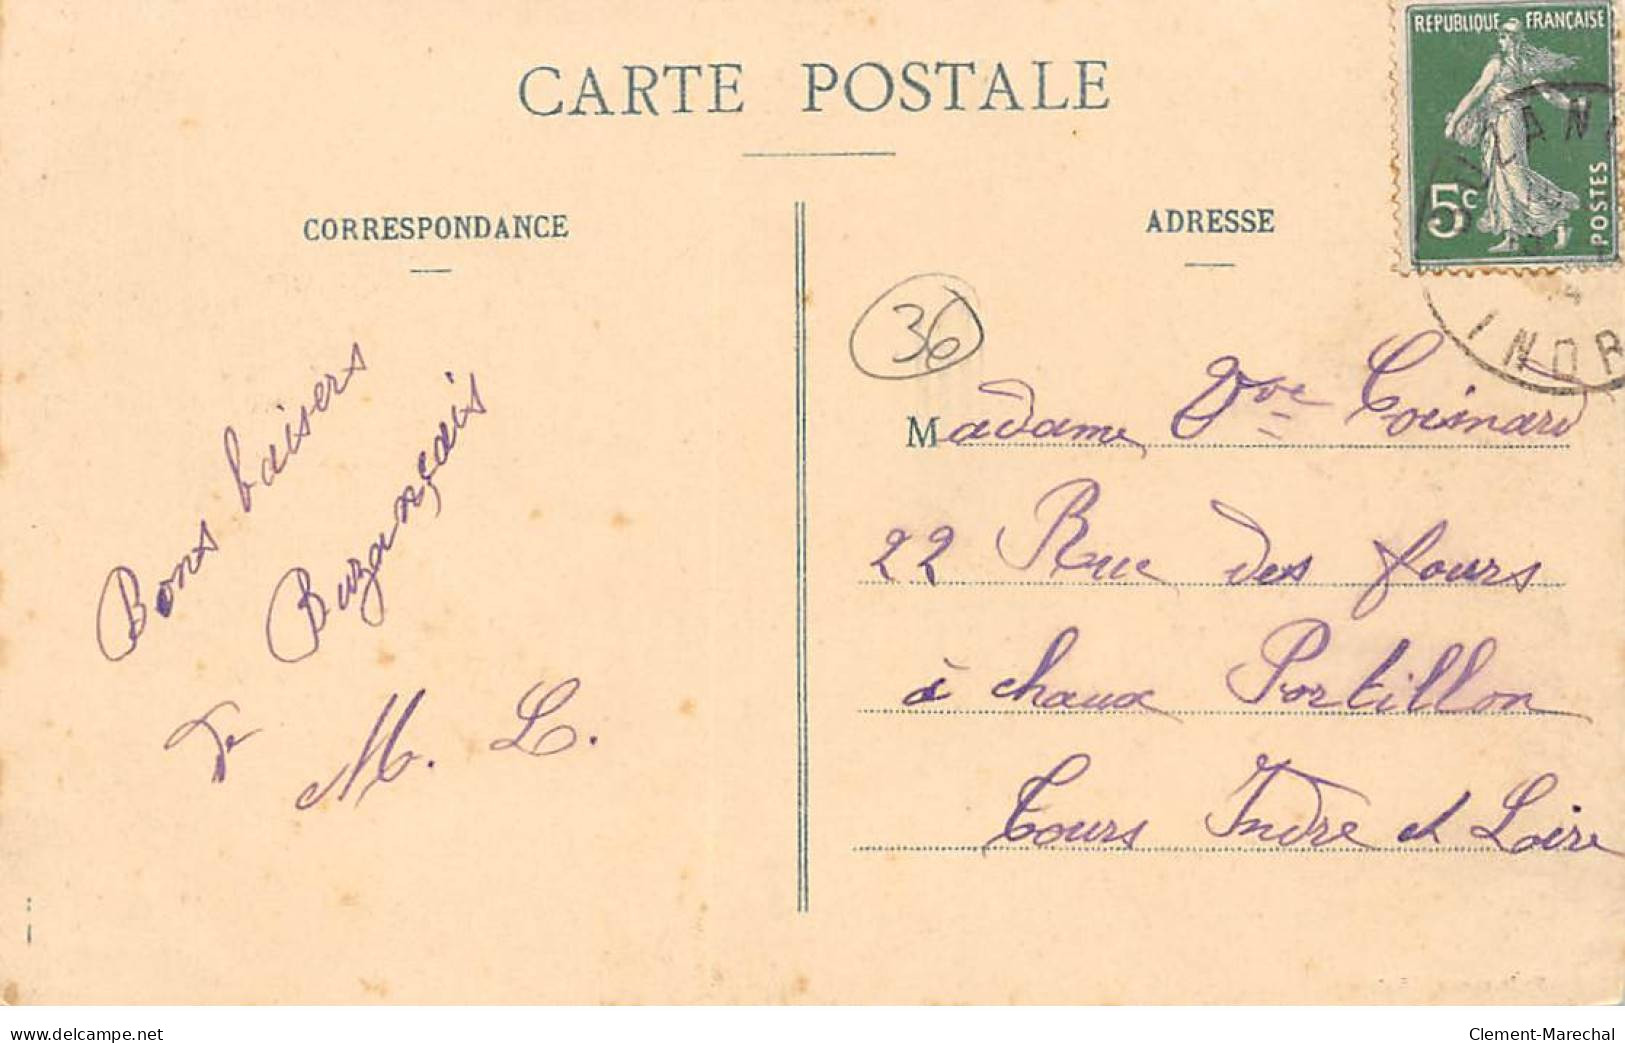 CARTE POSTALE
CORRESPONDANCE
ADRESSE
REPUBLIQUE FRANÇAISE
5c
POSTES
INDR
36
Bons baisers
de Buzançais
M. L.
Madame Vve Coisnard
22 Rue des fours
à chaux Portillon
Tours Indre et Loire
www.delcampe.net
Clement-Marechal